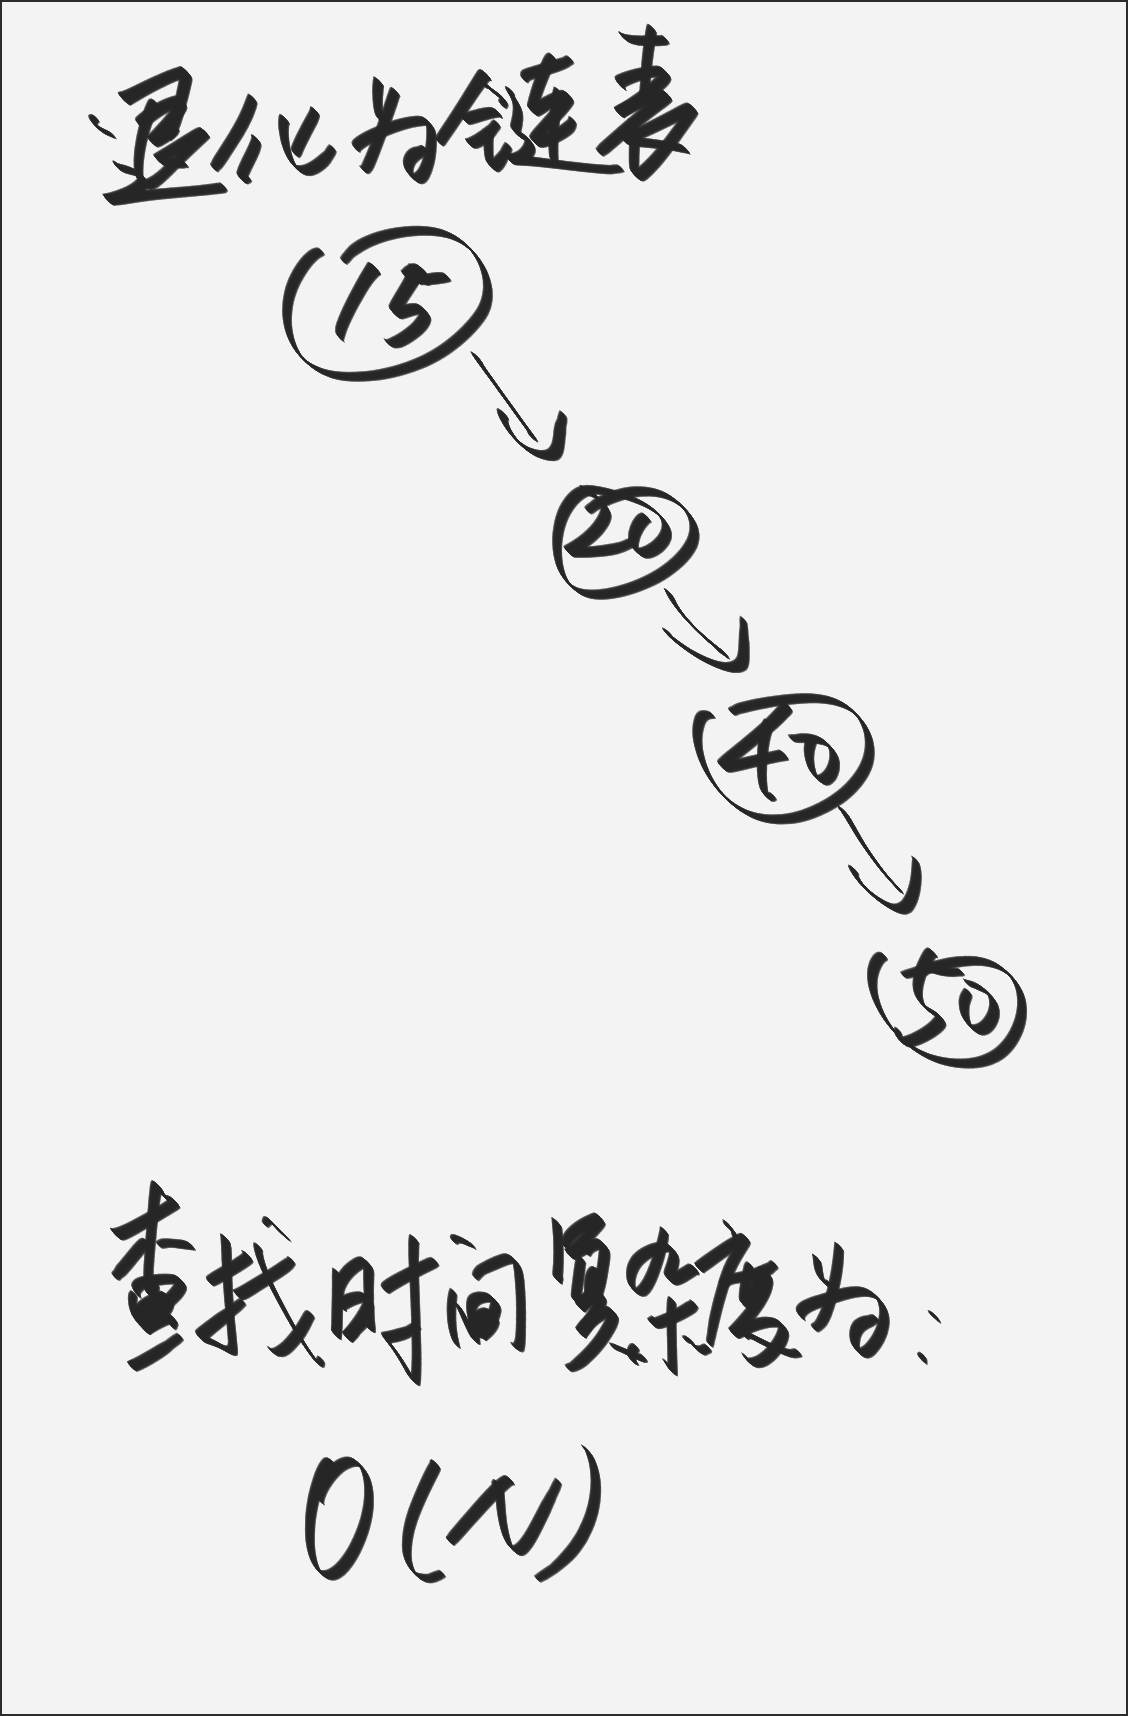 退化为链表
15
20
40
50
查找时间复杂度为:
O(N)